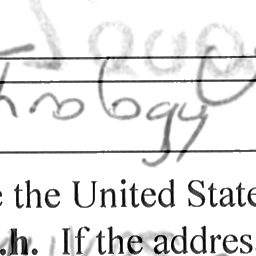 hnology
e the United State
.h. If the address